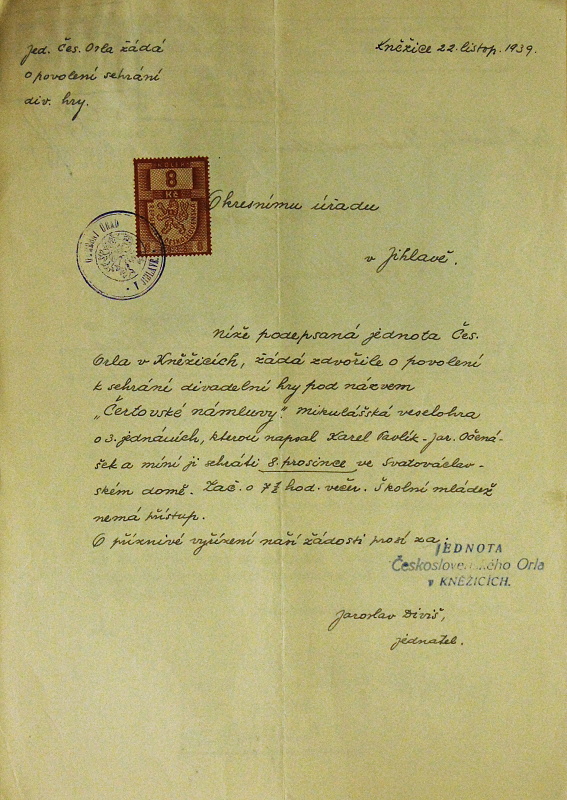 Jed. Čes. Orla žádá
o povolení sehrání
div. hry.
Kněžice 22. listop. 1939.
8
Kč
8 8
Okresnímu úřadu
v Jihlavě.
OKRESNÍ ÚŘAD
V JIHLAVĚ
Níže podepsaná jednota Čes.
Orla v Kněžicích, žádá zdvořile o povolení
k sehrání divadelní hry pod názvem
„Čertovské námluvy." Mikulášská veselohra
o 3. jednáních, kterou napsal Karel Pavlík - Jar. Očená-
šek a míní ji sehráti 8. prosince ve Svatováclav-
ském domě. Zač. o 7½ hod. večer. Školní mládež
nemá přístup.
O příznivé vyřízení naší žádosti prosí za:
JEDNOTA
Československého Orla
v KNĚŽICÍCH.
Jaroslav Diviš,
jednatel.